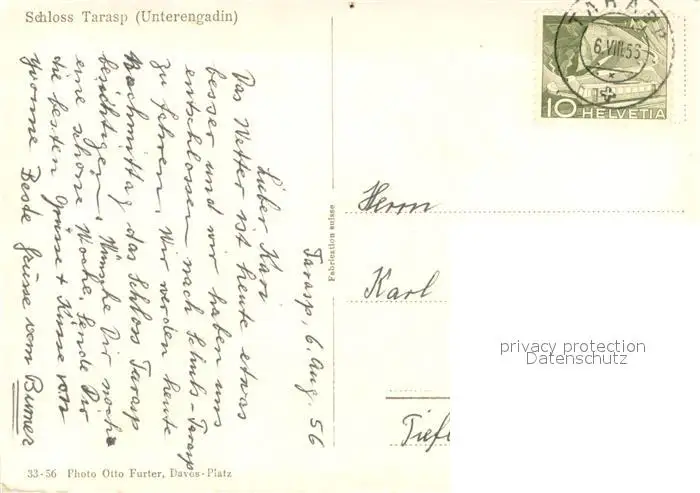 Schloss Tarasp (Unterengadin)
Tarasp, 6. Aug. 56
Lieber Karl
Das Wetter ist heute etwas
besser und wir haben uns
entschlossen nach Schuls-Tarasp
zu fahren. Wir werden heute
Nachmittag das Schloss Tarasp
besichtigen. Wünsche Dir noch
eine schöne Woche. Sende Dir
die besten Grüsse + Küsse von
Yvonne Beste Grüsse vom
33-56 Photo Otto Furter, Davos-Platz
Fabrication suisse
TARASP
6.VIII.56
10 HELVETIA
Herrn
Karl
Tief
privacy protection
Datenschutz